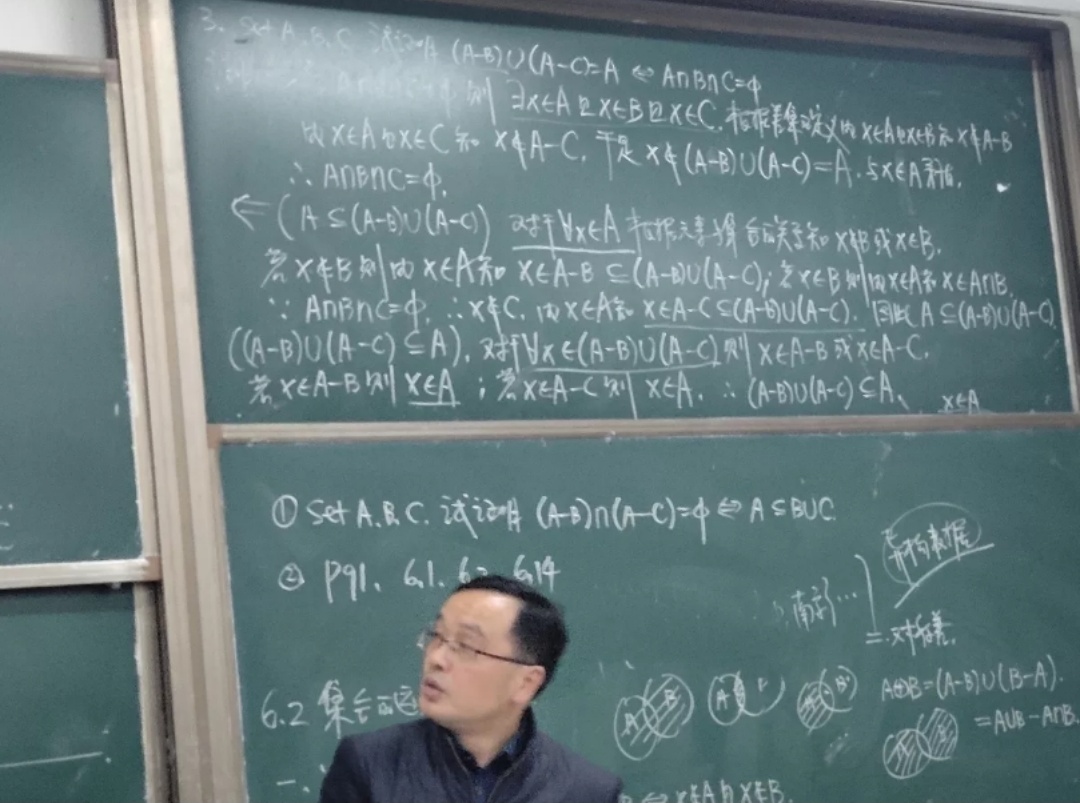 3. Set A.B.C 试证明 (A-B)∪(A-C)=A ⇔ A∩B∩C=φ
则 ∃x∈A且x∈B且x∈C. 根据差集定义由 x∈A且x∈B知 x∉A-B
由 x∈A且x∈C知 x∉A-C. 于是 x∉(A-B)∪(A-C)=A. 与x∈A矛盾.
∴ A∩B∩C=φ.
⇐ (A⊆(A-B)∪(A-C)) 对于∀x∈A 根据元素与集合的关系知 x∉B或x∈B.
若x∉B则由x∈A知 x∈A-B⊆(A-B)∪(A-C); 若x∈B则由x∈A知 x∈A∩B.
∵ A∩B∩C=φ. ∴x∉C. 由x∈A知 x∈A-C⊆(A-B)∪(A-C). 因此A⊆(A-B)∪(A-C).
((A-B)∪(A-C)⊆A). 对于∀x∈(A-B)∪(A-C) 则 x∈A-B或x∈A-C.
若x∈A-B则 x∈A ; 若x∈A-C则 x∈A. ∴ (A-B)∪(A-C)⊆A.
x∈A
① Set A.B.C. 试证明 (A-B)∩(A-C)=φ ⇔ A⊆B∪C.
② P91. 6.1. 6.14
异构数据
南京…
二.对称差.
6.2 集合的运
A B A B
A⊕B=(A-B)∪(B-A).
=A∪B-A∩B.
一.
⇔ x∈A且x∈B.